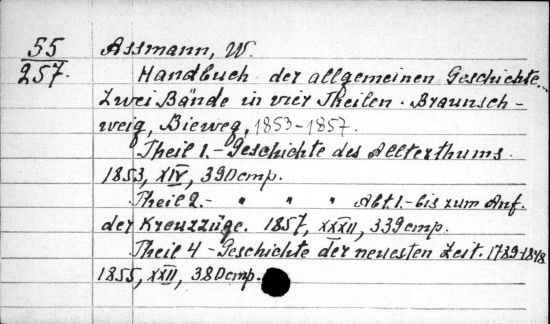 55
257.
Assmann, W.
Handbuch der allgemeinen Geschichte.
Zwei Bände in vier Theilen. Braunsch-
weig, Bieweg, 1853-1857.
Theil 1.- Geschichte des Allterthums.
1853, XIV, 390 стр.
Theil 2.- " " " Abt.1.- bis zum Anf.
der Kreuzzüge. 1857, XXXII, 339 стр.
Theil 4 - Geschichte der neuesten Zeit. 1789-1848.
1855, XXII, 380 стр.